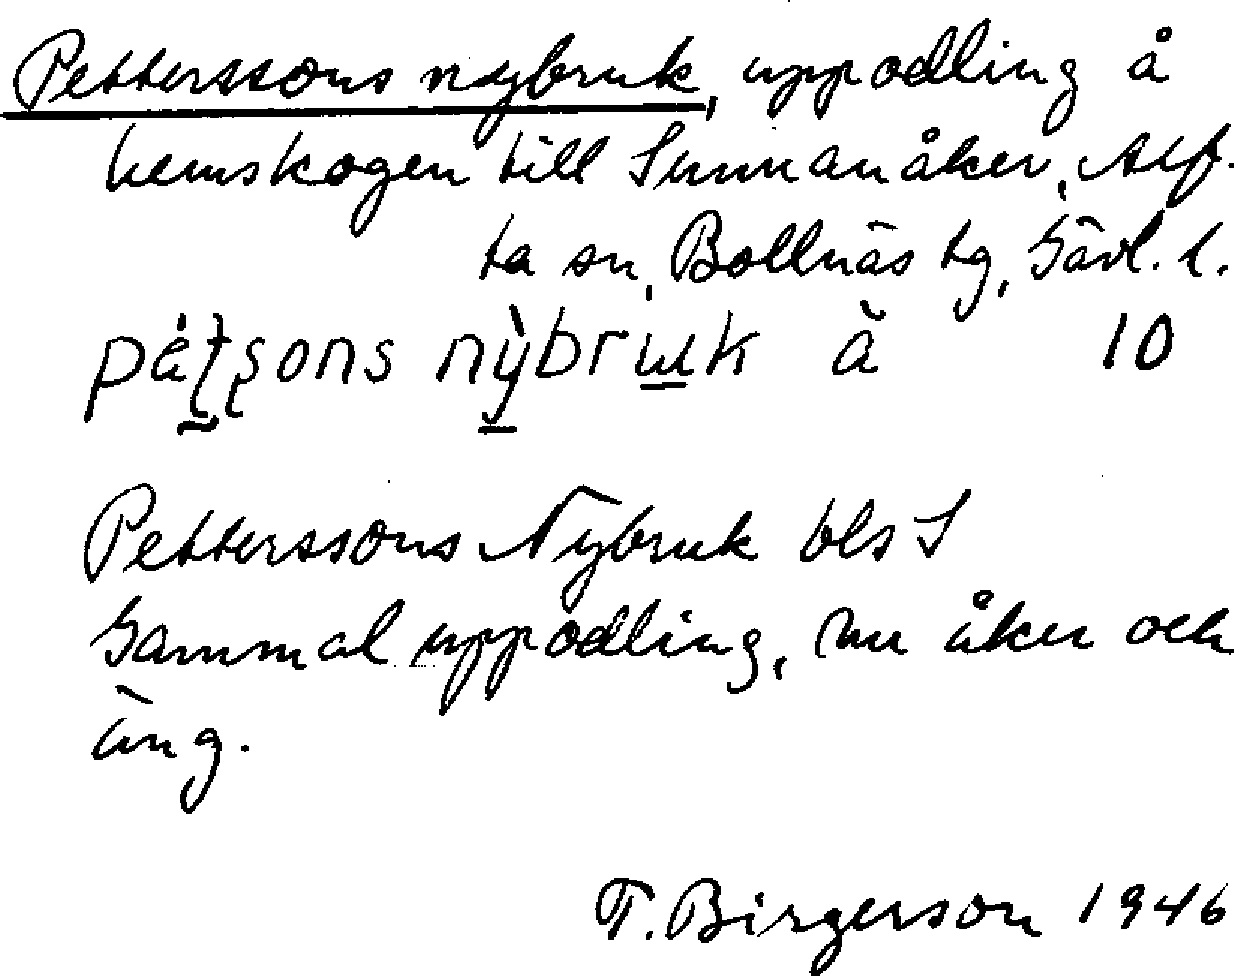 Petterssons nybruk, uppodling å
hemskogen till Sunnanåker, Alf-
ta sn, Bollnäs tg, Gävl. l.
pætsons nỳbruk å 10
Petterssons Nybruk bls S
Gammal uppodling, nu åker och
äng.
T. Birgerson 1946